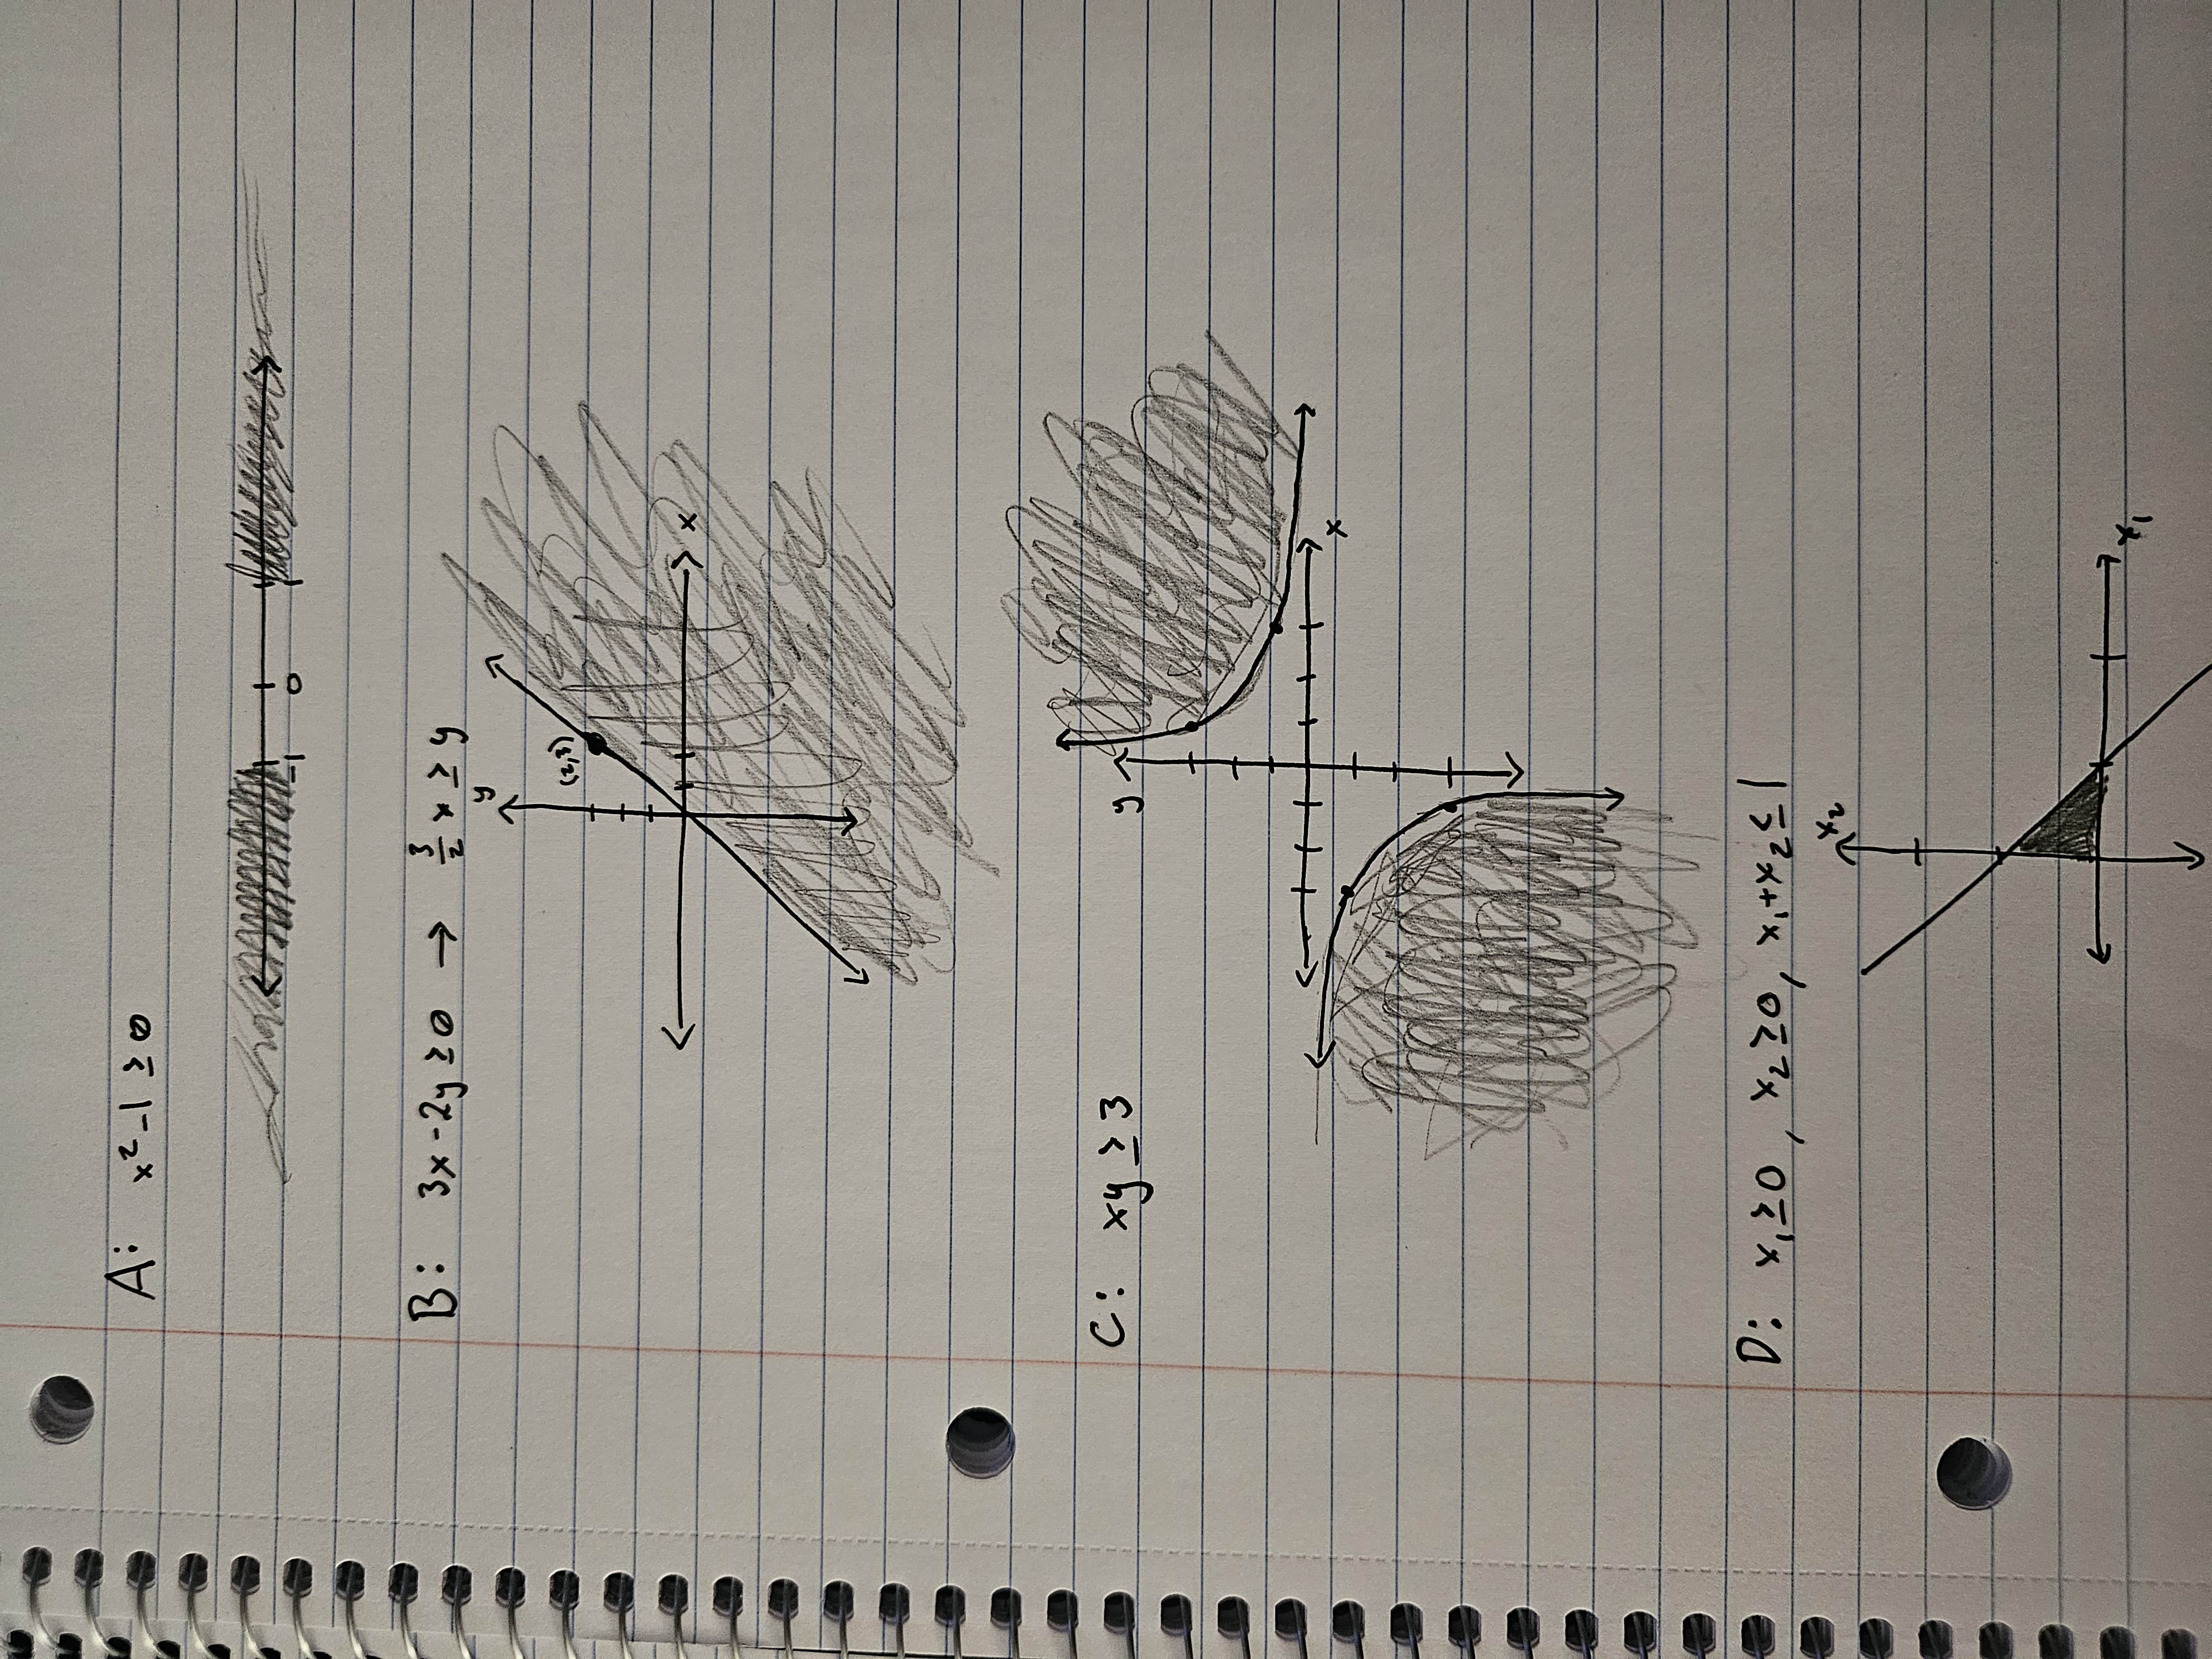 A: x² -1 ≥ 0
-1 0
B: 3x - 2y ≥ 0 → 3/2 x ≥ y
y
(2,3)
x
C: xy ≥ 3
y
x
D: x₁ ≥ 0 , x₂ ≥ 0, x₁+x₂ ≤ 1
x₂
x₁